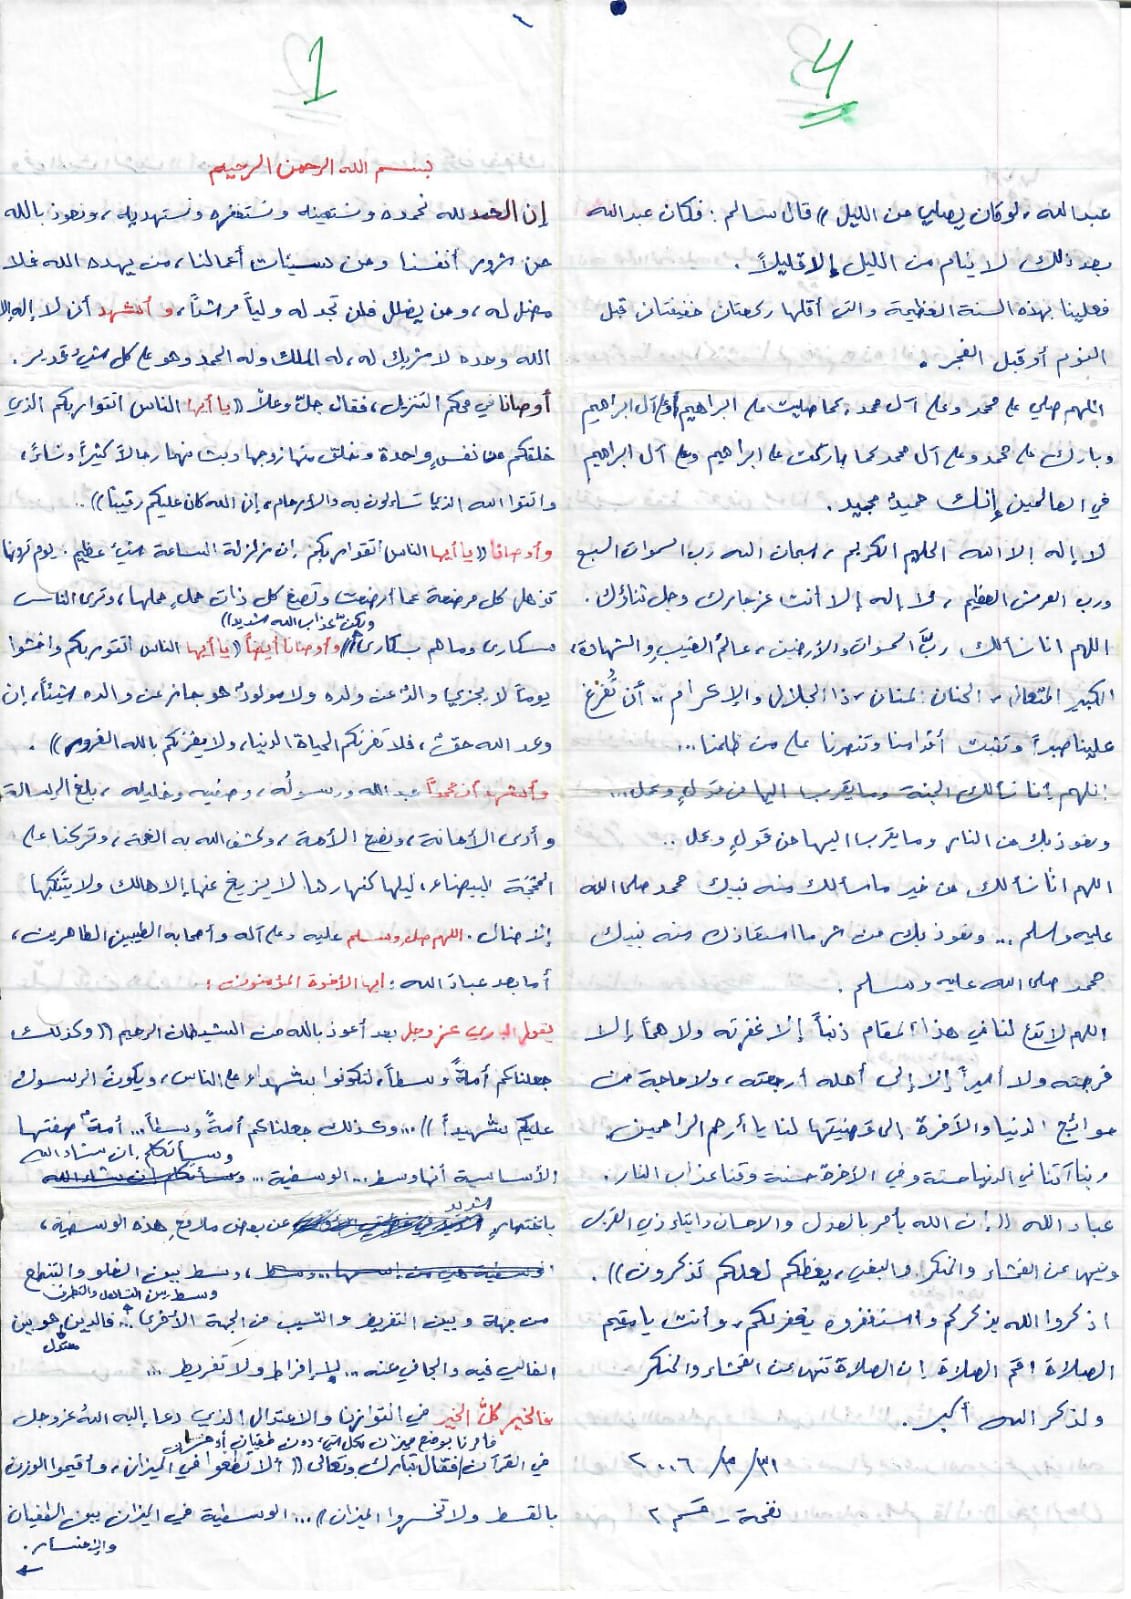 1
بسم الله الرحمن الرحيم
إن الحمد لله نحمده ونستعينه ونستغفره ونستهديه، ونعوذ بالله
من شرور أنفسنا ومن سيئات أعمالنا، من يهده الله فلا
مضل له، ومن يضلل فلن تجد له ولياً مرشداً، وأشهد أن لا إله إلا
الله وحده لا شريك له، له الملك وله الحمد وهو على كل شيء قدير.
أوصانا في محكم التنزيل، فقال جلّ وعلا ((يا أيها الناس اتقوا ربكم الذي
خلقكم من نفسٍ واحدة وخلق منها زوجها وبث منهما رجالاً كثيراً ونساءً،
واتقوا الله الذي تساءلون به والأرحام، إن الله كان عليكم رقيباً))..
وأوصانا ((يا أيها الناس اتقوا ربكم إن زلزلة الساعة شيءٌ عظيم. يوم ترونها
تذهل كل مرضعة عما أرضعت وتضع كل ذات حملٍ حملها، وترى الناس
سكارى وما هم بسكارى ولكنّ عذاب الله شديد)) وأوصانا أيضاً ((يا أيها الناس اتقوا ربكم واخشوا
يوماً لا يجزي والدٌ عن ولده ولا مولودٌ هو جازٍ عن والده شيئاً، إن
وعد الله حقٌ، فلا تغرنكم الحياة الدنيا، ولا يغرنكم بالله الغرور)).
وأشهد أن محمداً عبد الله ورسولُه، وصفيه وخليله، بلغ الرسالة
وأدى الأمانة، ونصح الأمة، وكشف الله به الغمة، وتركنا على
المحجّة البيضاء، ليلها كنهارها لا يزيغ عنها إلا هالك ولا يتنكبها
إلا ضال. اللهم صلِ وسلم عليه وعلى آله وأصحابه الطيبين الطاهرين،
أما بعد عبادَ الله: أيها الأخوة المؤمنون:
يقول الباري عز وجل بعد أعوذ بالله من الشيطان الرجيم ((وكذلك
جعلناكم أمةً وسطاً، لتكونوا شهداء على الناس، ويكون الرسول
عليكم شهيداً))... وكذلك جعلناكم أمةً وسطاً... أمة صفتها
الأساسية أنها وسط... الوسطية... وسيأتكلم إن شاء الله
باختصار شديد عن بعض ملامح هذه الوسطية،
وسط بين الغلو والتنطع
من جهة وبين التفريط والتسيب من الجهة الأخرى وسط بين التساهل والتطرف... فالدين هو بين
الغالي فيه والجافي عنه... لا إفراط ولا تفريط...
فالخير كلُّ الخير في التوازن والاعتدال الذي دعا إليه اللهُ عز وجل
في القرآن فأمرنا بوضع ميزان لكل شيء دون طغيان أو خسران فقال تبارك وتعالى ((ألا تطغوا في الميزان، وأقيموا الوزن
بالقسط ولا تخسروا الميزان))... الوسطية في الميزان بين الطغيان
والإخسار.
4
عبد الله، لو كان يصلي من الليل)) قال سالم: فكان عبد الله
بعد ذلك لا ينام من الليل إلا قليلاً.
فعلينا بهذه السنة العظيمة والتي أقلها ركعتان خفيفتان قبل
النوم أو قبل الفجر.
اللهم صلي على محمد وعلى آل محمد، كما صليت على ابراهيم وعلى آل ابراهيم
وبارك على محمد وعلى آل محمد كما باركت على ابراهيم وعلى آل ابراهيم
في العالمين إنك حميدٌ مجيد.
لا إله إلا الله الحليم الكريم، سبحان الله رب السموات السبع
ورب العرش العظيم، ولا إله إلا أنت عز جارك وجل ثناؤك.
اللهم انا نسألك ربَّ السموات والأرضين، عالمُ الغيبِ والشهادة،
الكبير المتعال، الحنان المنان، ذا الجلال والإكرام.. أن تُفرغ
علينا صبراً وتثبت أقدامنا وتنصرنا على من ظلمنا...
اللهم إنا نسألك الجنة وما يقرب اليها من قولٍ وعمل...
ونعوذ بك من النار وما يقرب اليها من قولٍ وعمل..
اللهم انّا نسألك من خير ما سألك منه نبيك محمد صلى الله
عليه وسلم... ونعوذ بك من شر ما استعاذك منه نبيك
محمد صلى الله عليه وسلم.
اللهم لا تدع لنا في هذا المقام ذنباً إلا غفرته ولا هماً إلا
فرجته ولا أسيراً إلا إلى أهله أرجعته، ولا حاجة من
حوائج الدنيا والآخرة إلا قضيتها لنا يا أرحم الراحمين
ربنا آتنا في الدنيا حسنة وفي الآخرة حسنة وقنا عذاب النار.
عباد الله ((إن الله يأمر بالعدل والاحسان وايتاء ذي القربى
وينهى عن الفحشاء والمنكر والبغي، يعظكم لعلكم تذكرون)).
اذكروا الله يذكركم واستغفروه يغفر لكم، وأنت يا مقيم
الصلاة أقم الصلاة إن الصلاة تنهى عن الفحشاء والمنكر
ولذكر الله أكبر.
٣١/٣/٢٠٠٦
نفحة - قسم ٢